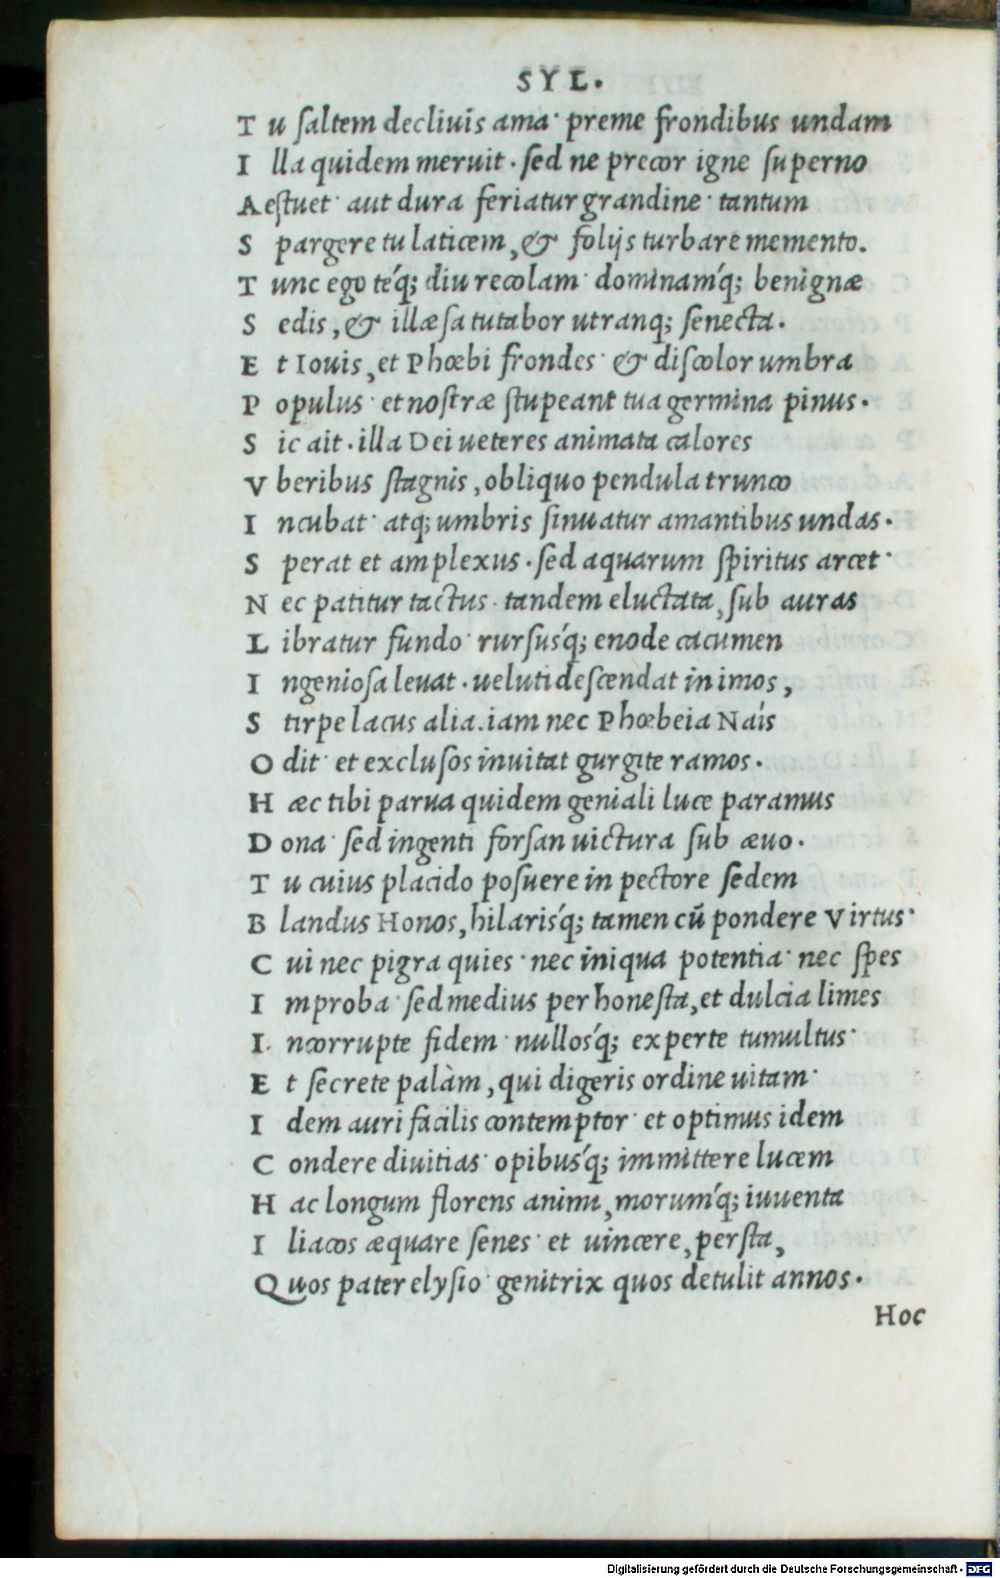 SYL.
T u ſaltem decliuis ama· preme frondibus undam
I lla quidem meruit· ſed ne precor igne ſuperno
Aeſtuet· aut dura feriatur grandine· tantum
S pargere tu laticem, & folijs turbare memento.
T unc ego té́q; diu recolam· dominamq́; benignæ
S edis, & illæſa tutabor utranq; ſenecta.
E t Iouis, et Phœbi frondes· & diſcolor umbra
P opulus· et noſtræ ſtupeant tua germina pinus.
S ic ait· illa Dei ueteres animata calores
V beribus ſtagnis, obliquo pendula trunco
I ncubat· atq; umbris ſinuatur amantibus undas.
S perat et amplexus· ſed aquarum ſpiritus arcet·
N ec patitur tactus· tandem eluctata, ſub auras
L ibratur fundo· rurſusq́; enode cacumen
I ngenioſa leuat· ueluti deſcendat in imos,
S tirpe lacus alia. iam nec Phœbeia Naís
O dit· et excluſos inuitat gurgite ramos.
H æc tibi parua quidem geniali luce paramus
D ona· ſed ingenti forſan uictura ſub æuo.
T u cuius placido poſuere in pectore ſedem
B landus Honos, hilarisq́; tamen cū pondere Virtus·
C ui nec pigra quies· nec iniqua potentia· nec ſpes
I mproba· ſed medius per honeſta, et dulcia limes
I ncorrupte fidem· nullosq́; experte tumultus·
E t ſecrete palàm, qui digeris ordine uitam·
I dem auri facilis contemptor· et optimus idem
C ondere diuitias· opibusq́; immittere lucem
H ac longum florens animi, morumq́; iuuenta
I liacos æquare ſenes· et uincere, perſta,
Quos pater elyſio· genitrix quos detulit annos.
Hoc
Digitalisierung gefördert durch die Deutsche Forschungsgemeinschaft - DFG